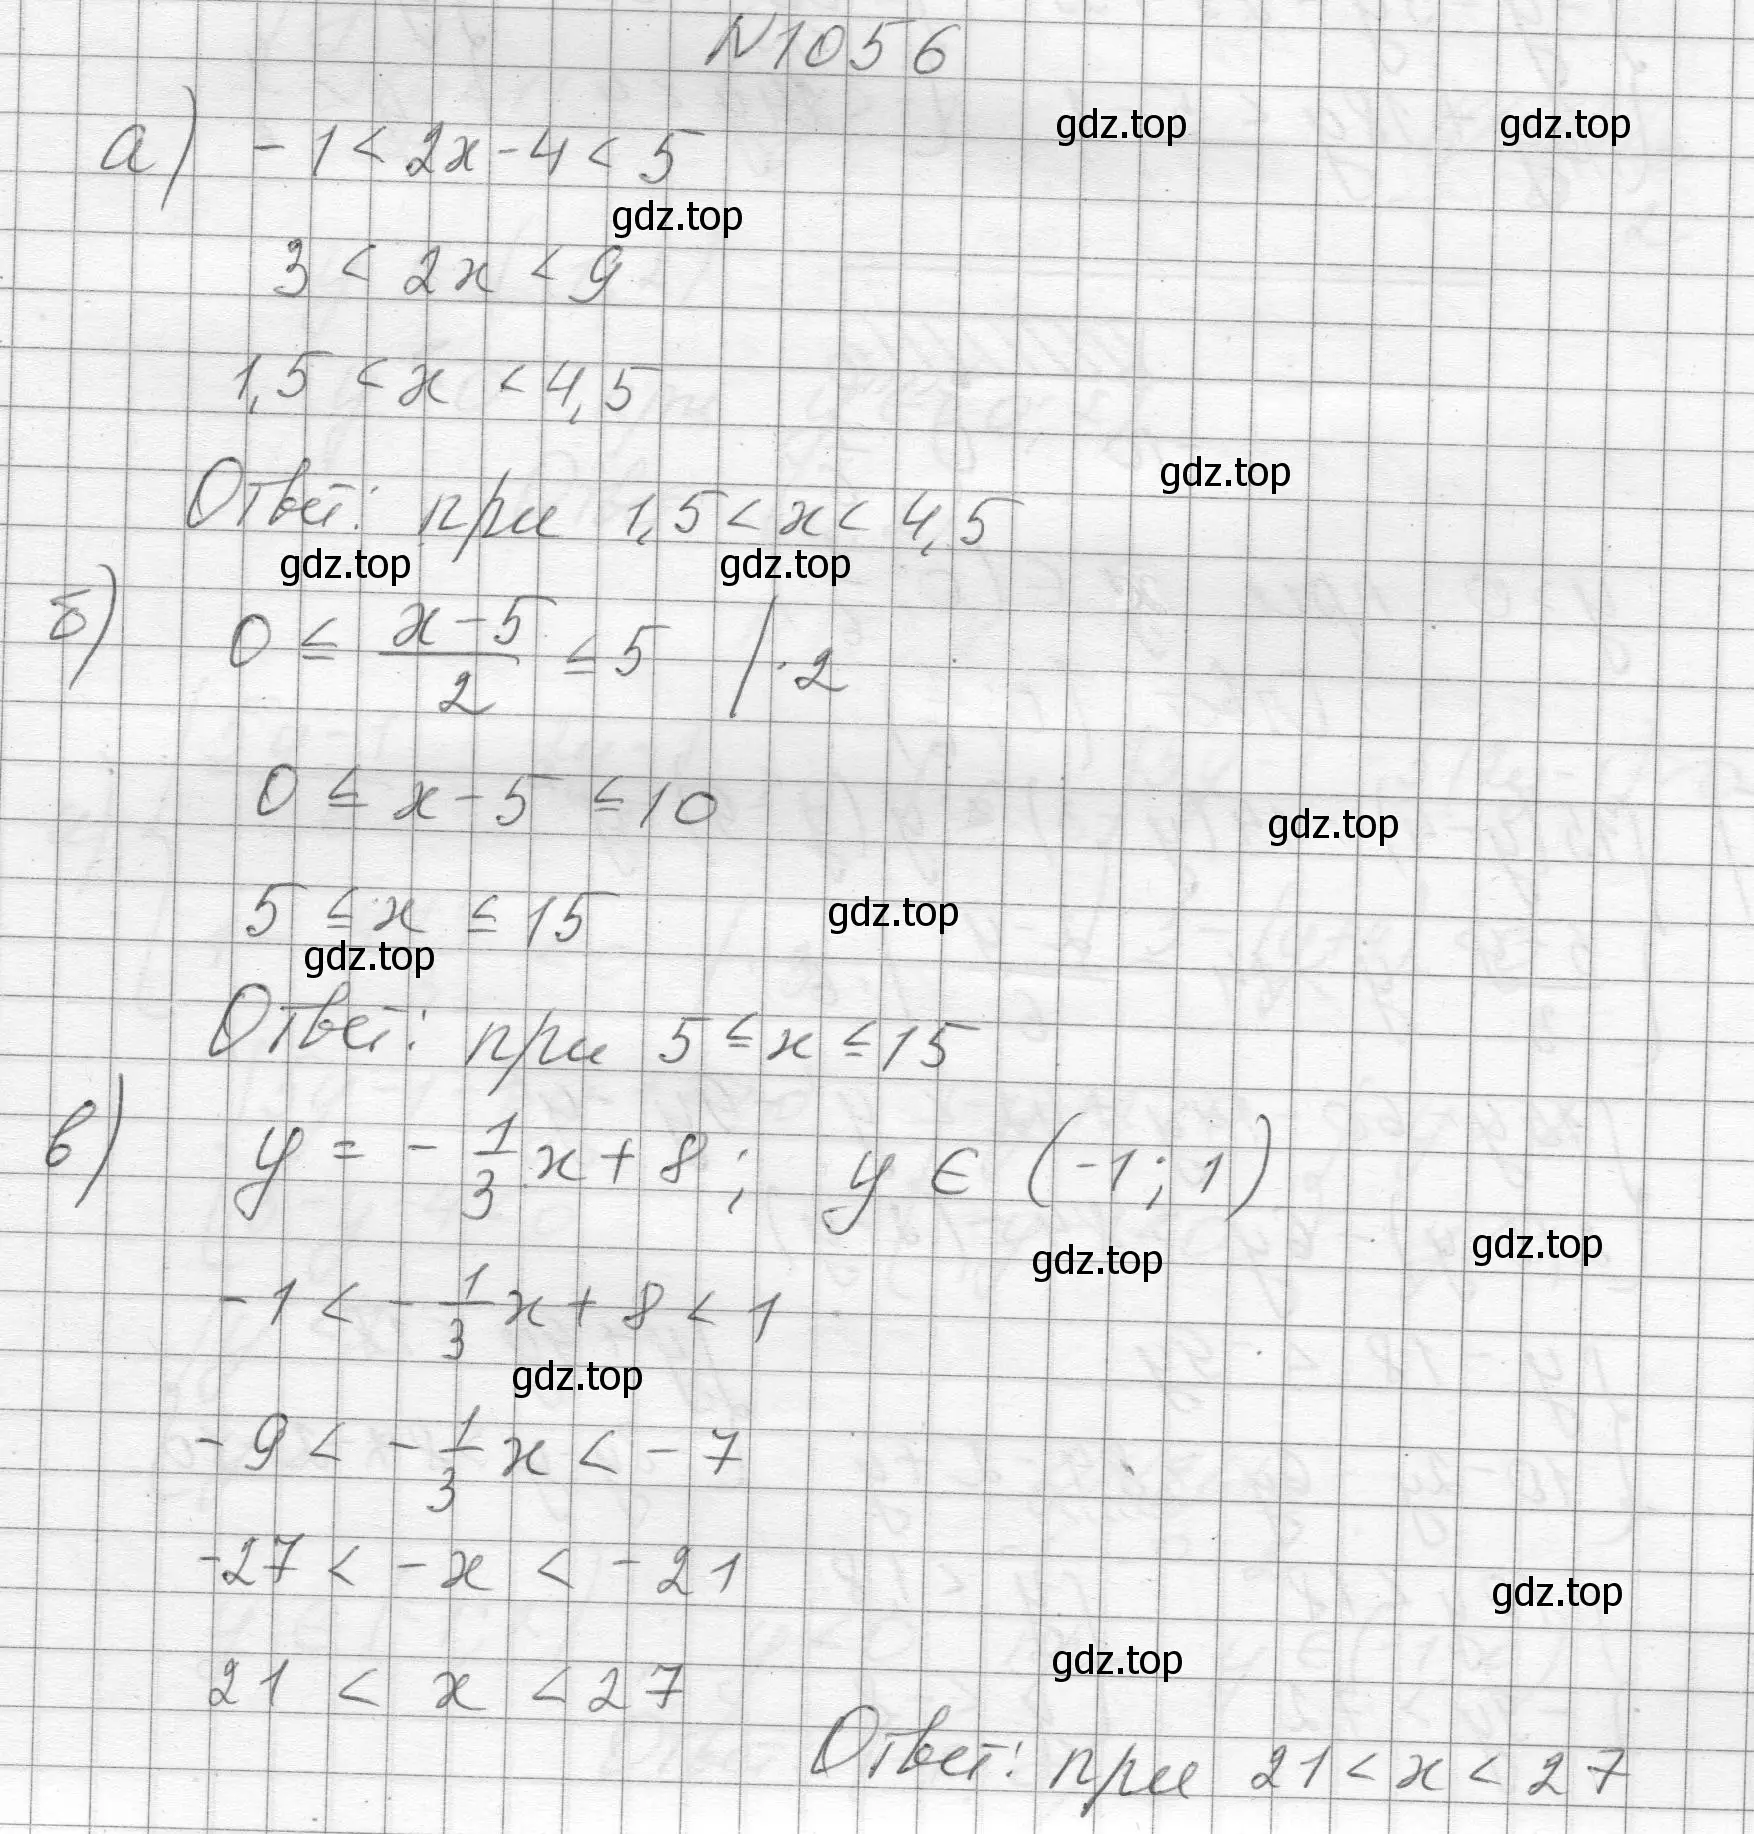 N1056
а) -1 < 2x - 4 < 5
3 < 2x < 9
1,5 < x < 4,5
Ответ: при 1,5 < x < 4,5
б) 0 ≤ (x-5)/2 ≤ 5 | · 2
0 ≤ x - 5 ≤ 10
5 ≤ x ≤ 15
Ответ: при 5 ≤ x ≤ 15
в) y = - 1/3 x + 8; y ∈ (-1; 1)
-1 < - 1/3 x + 8 < 1
-9 < - 1/3 x < -7
-27 < -x < -21
21 < x < 27
Ответ: при 21 < x < 27
gdz.top
gdz.top
gdz.top
gdz.top
gdz.top
gdz.top
gdz.top
gdz.top
gdz.top
gdz.top
gdz.top
gdz.top
gdz.top
gdz.top